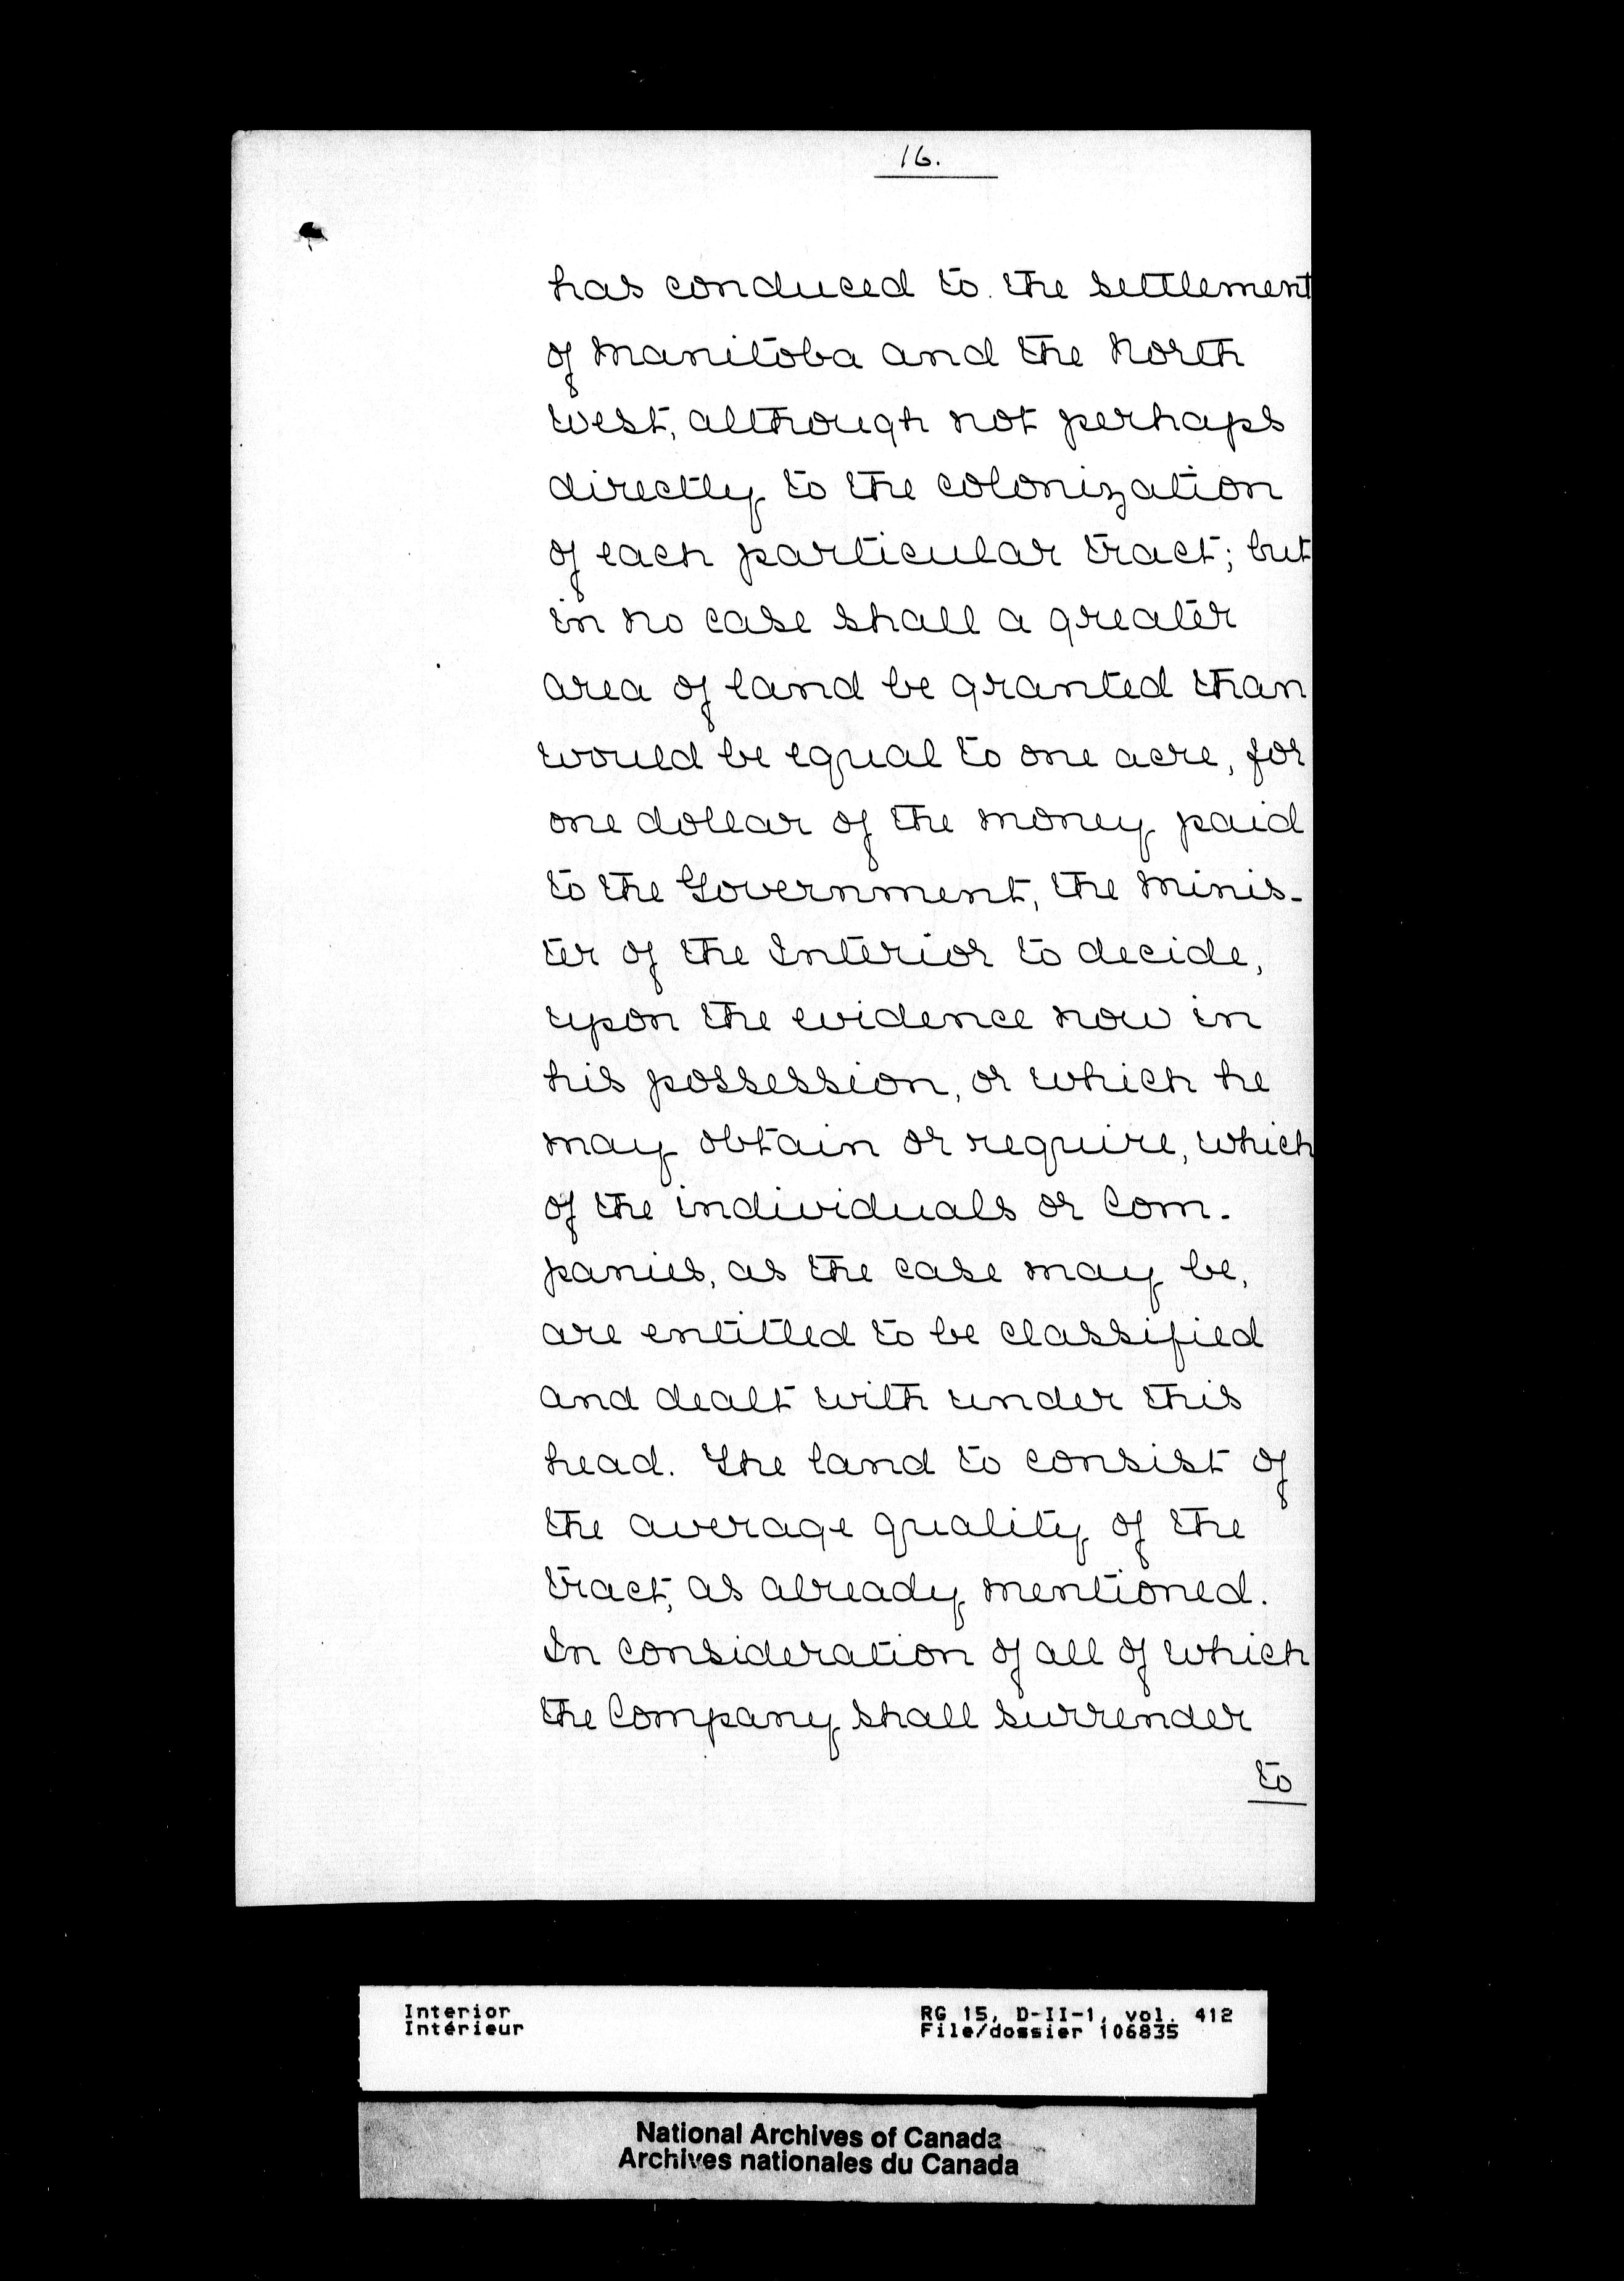 16.
has conduced to the settlement
of Manitoba and the North
West, although not perhaps
directly to the colonization
of each particular tract; but
in no case shall a greater
area of land be granted than
would be equal to one acre, for
one dollar of the money paid
to the Government, the Minis-
ter of the Interior to decide,
upon the evidence now in
his possession, or which he
may obtain or require, which
of the individuals or Com-
panies, as the case may be,
are entitled to be classified
and dealt with under this
head. The land to consist of
the average quality of the
tract, as already mentioned.
In consideration of all of which
the Company shall surrender
to
Interior
Intérieur
RG 15, D-II-1, vol. 412
File/dossier 106835
National Archives of Canada
Archives nationales du Canada